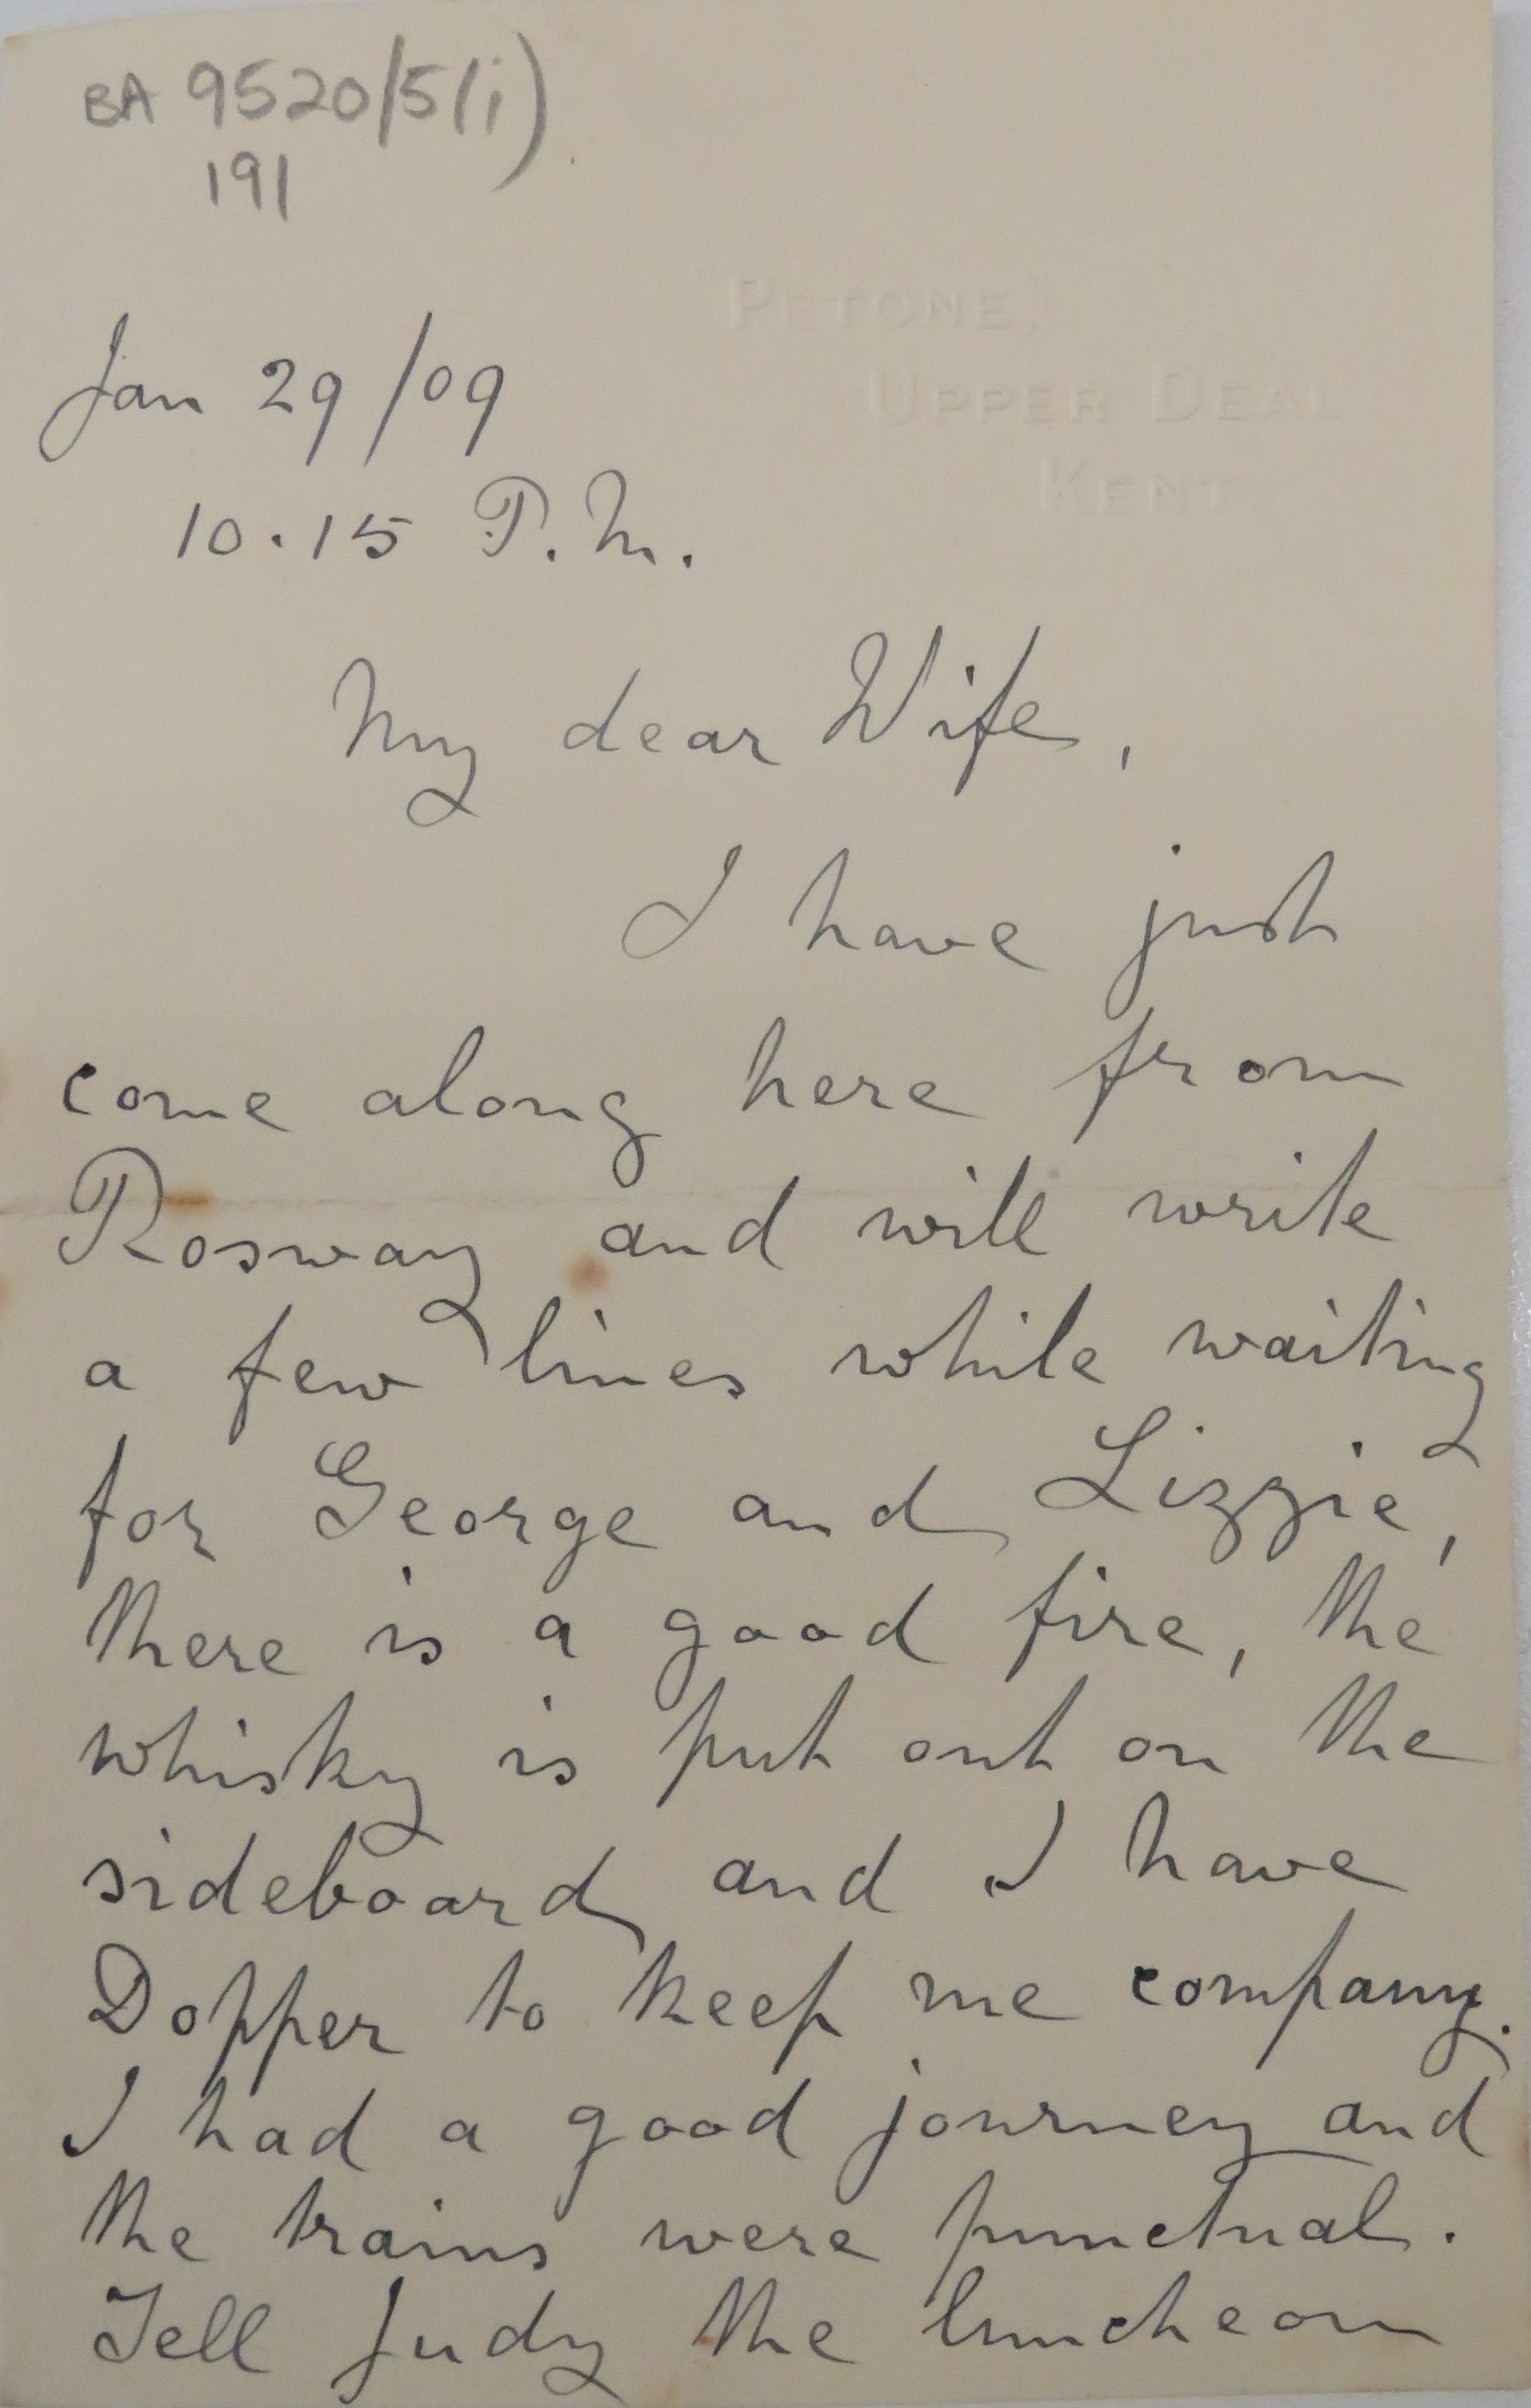 BA 9520/5(i)
191
"PETONE,"
UPPER DEAL
KENT
Jan 29/09
10.15 P.M.
My dear Wife,
I have just
come along here from
Rosway and will write
a few lines while waiting
for George and Lizzie,
there is a good fire, the
whisky is put out on the
sideboard and I have
Dopper to keep me company.
I had a good journey and
the trains were punctual.
Tell Judy the luncheon